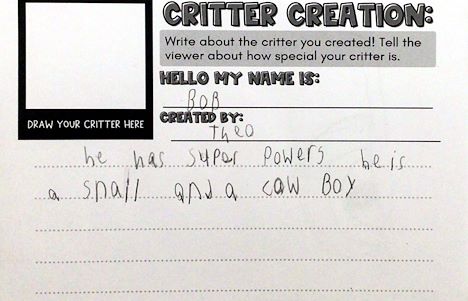 CRITTER CREATION:
Write about the critter you created! Tell the
viewer about how special your critter is.
HELLO MY NAME IS:
BOB
CREATED BY:
Theo
DRAW YOUR CRITTER HERE
he has super powers he is
a snall and a caw Box